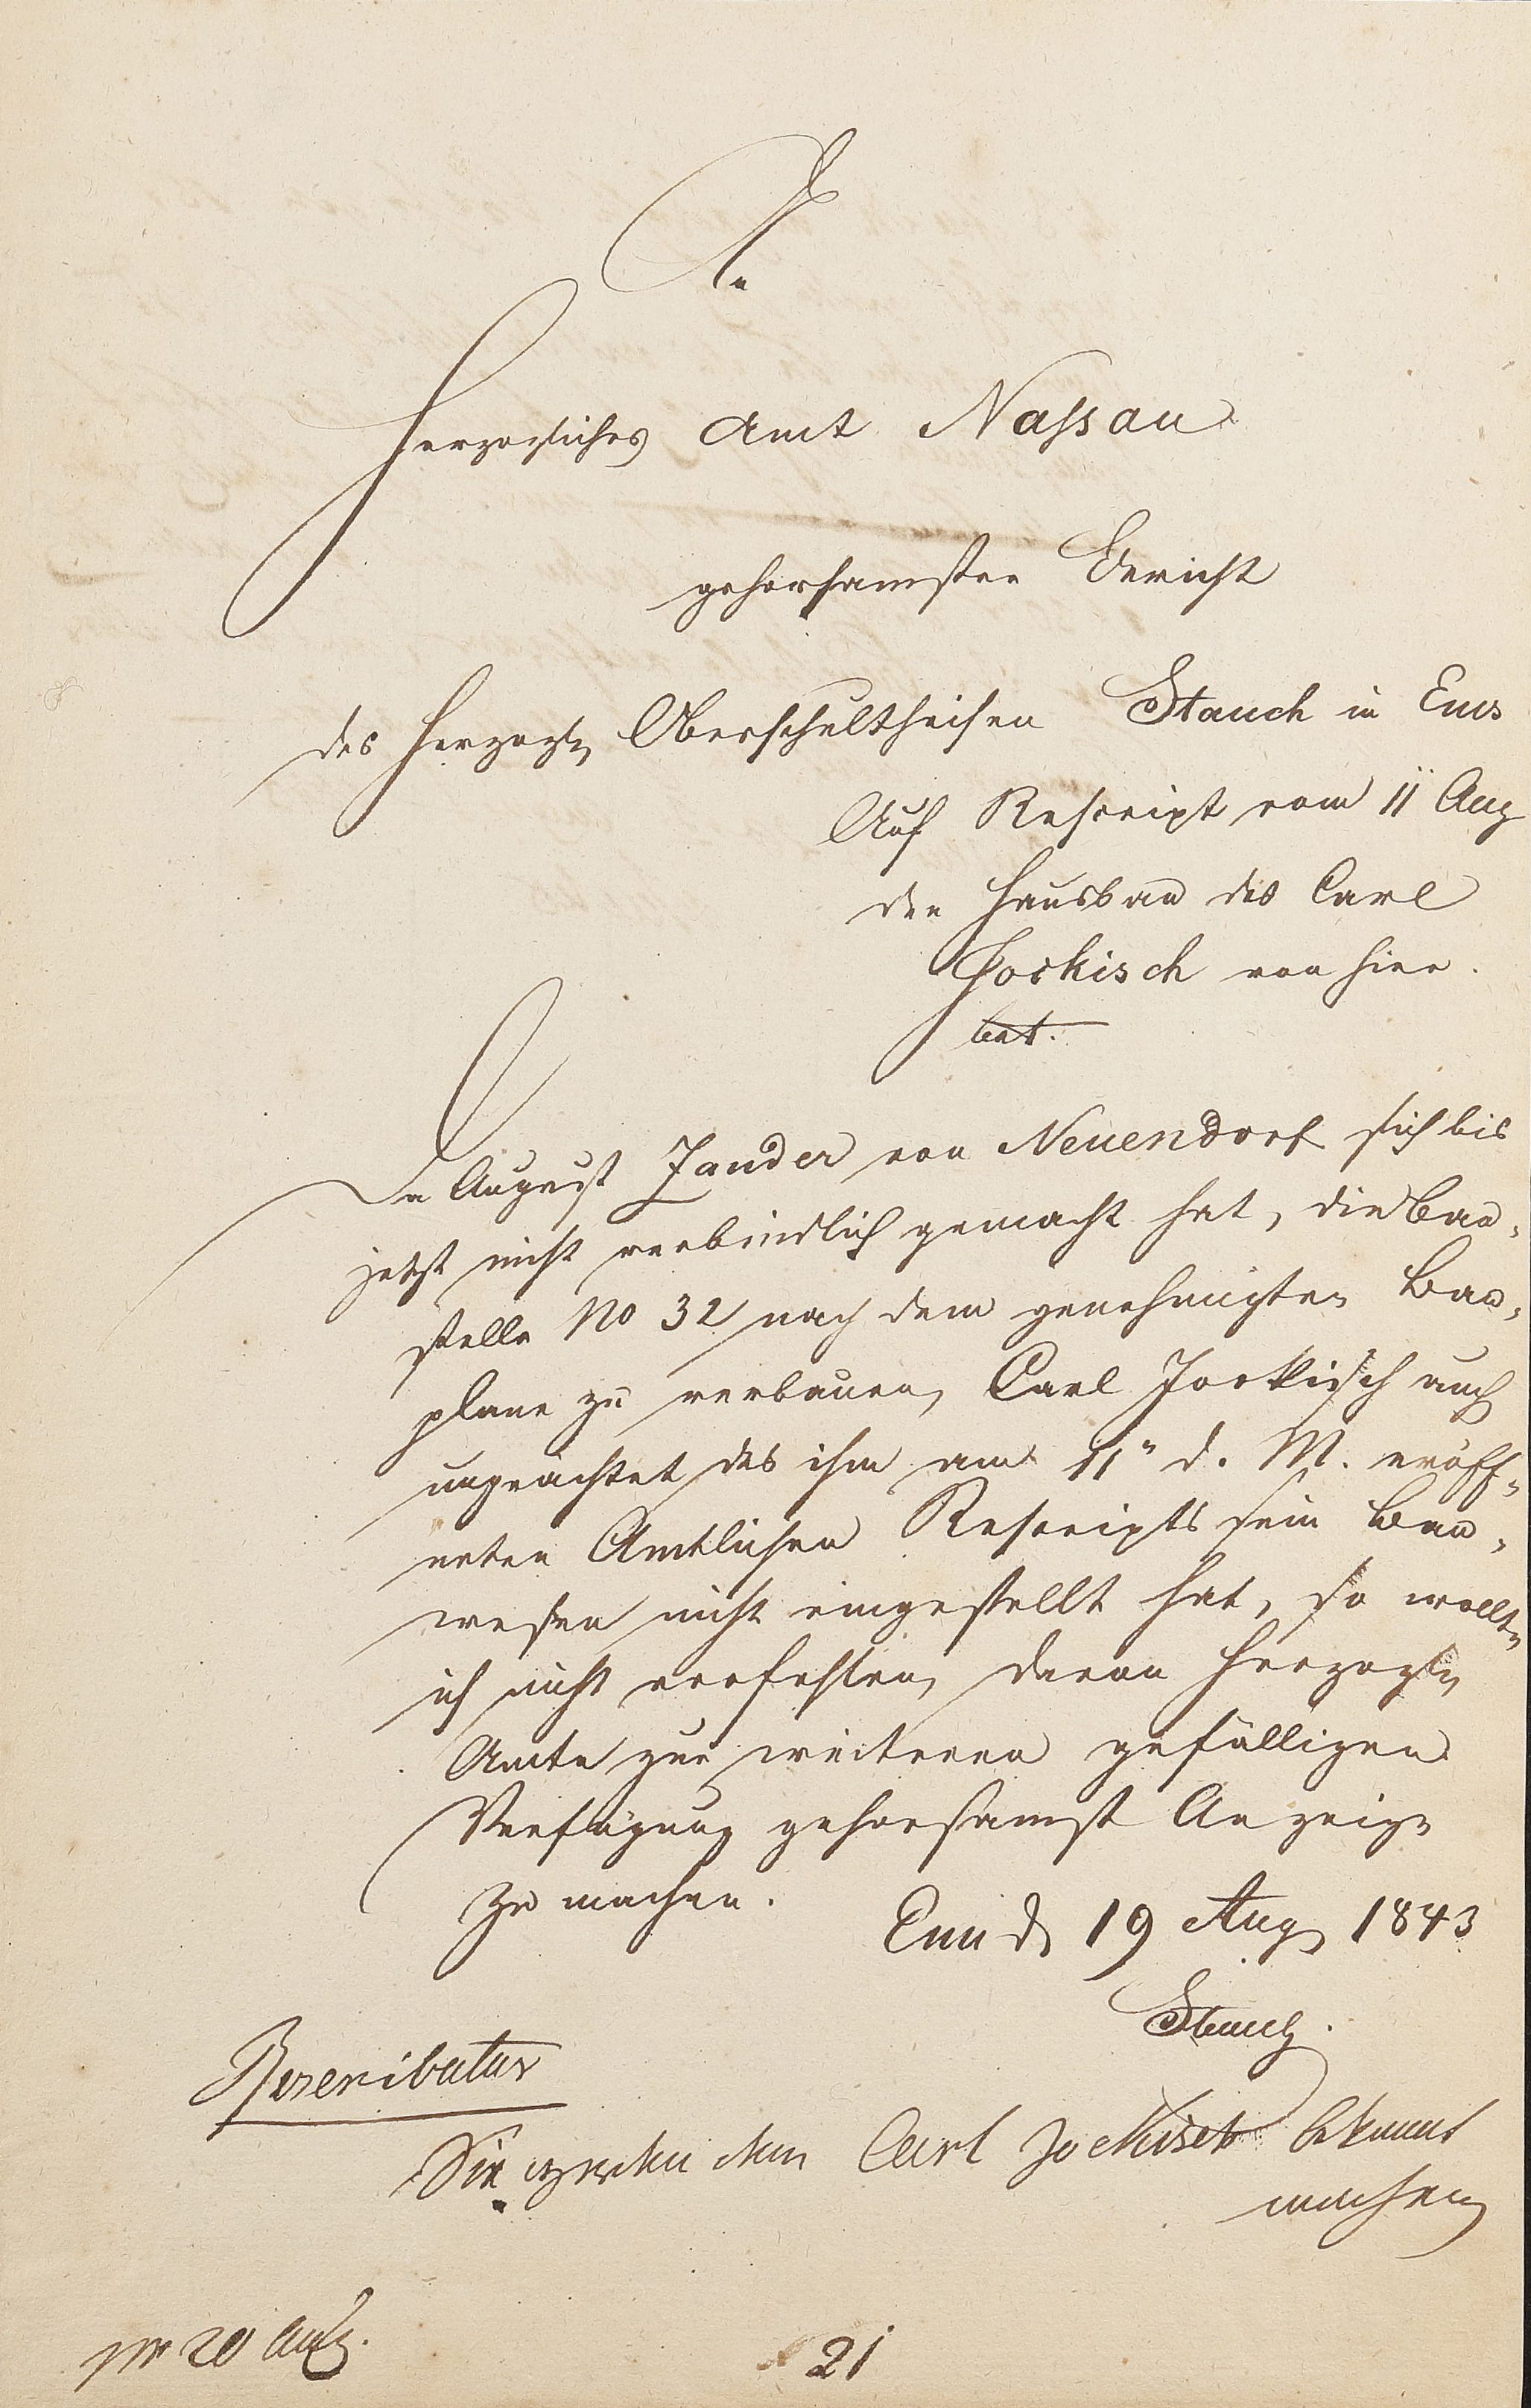 An
Herzogliches Amt Nassau
gehorsamster Bericht
des Herzogl. Oberschultheisen Stauch in Ems
Auf Rescript vom 11" Aug
den Hausbau des Carl
Jockisch von hier.
bet.
Da August Zander von Neuendorf sich bis
jetzt nicht verbindlich gemacht hat, die Bau-
stelle No 32 nach dem genehmigten Bau-
plane zu verbauen, Carl Jockisch auch
ungeachtet des ihm am 11" d. M. eröff-
neten Amtlichen Rescripts sein Bau-
wesen nicht eingestellt hat, so wollte
ich nicht verfehlen, davon Herzogl.
Amte zur weiteren gefälligen
Verfügung gehorsamst Anzeige
zu machen.
Ems d. 19 Aug 1843
Stauch.
Rescribatur
Sie werden dem Carl Jockisch bekannt
machen
pr 20 Aug.
21